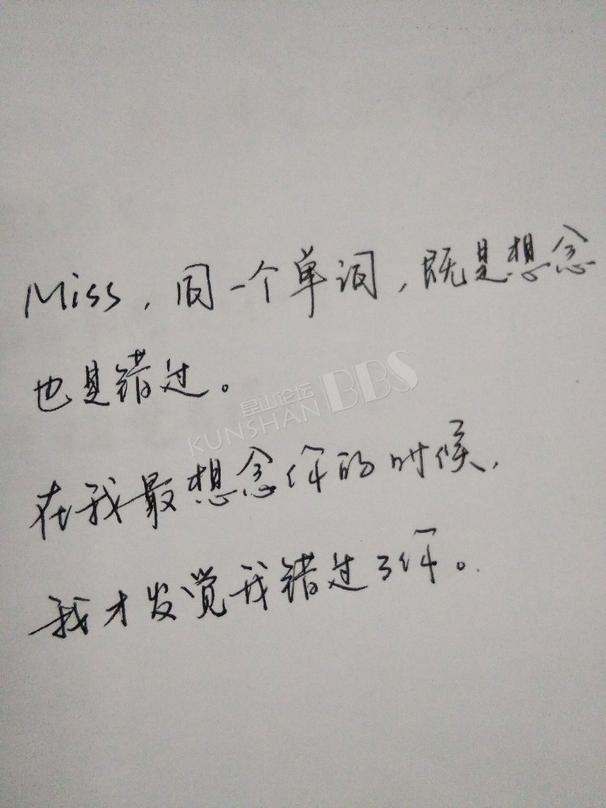 Miss，同一个单词，既是想念
也是错过。
昆山论坛
KUNSHAN BBS
在我最想念你的时候，
我才发觉我错过了你。